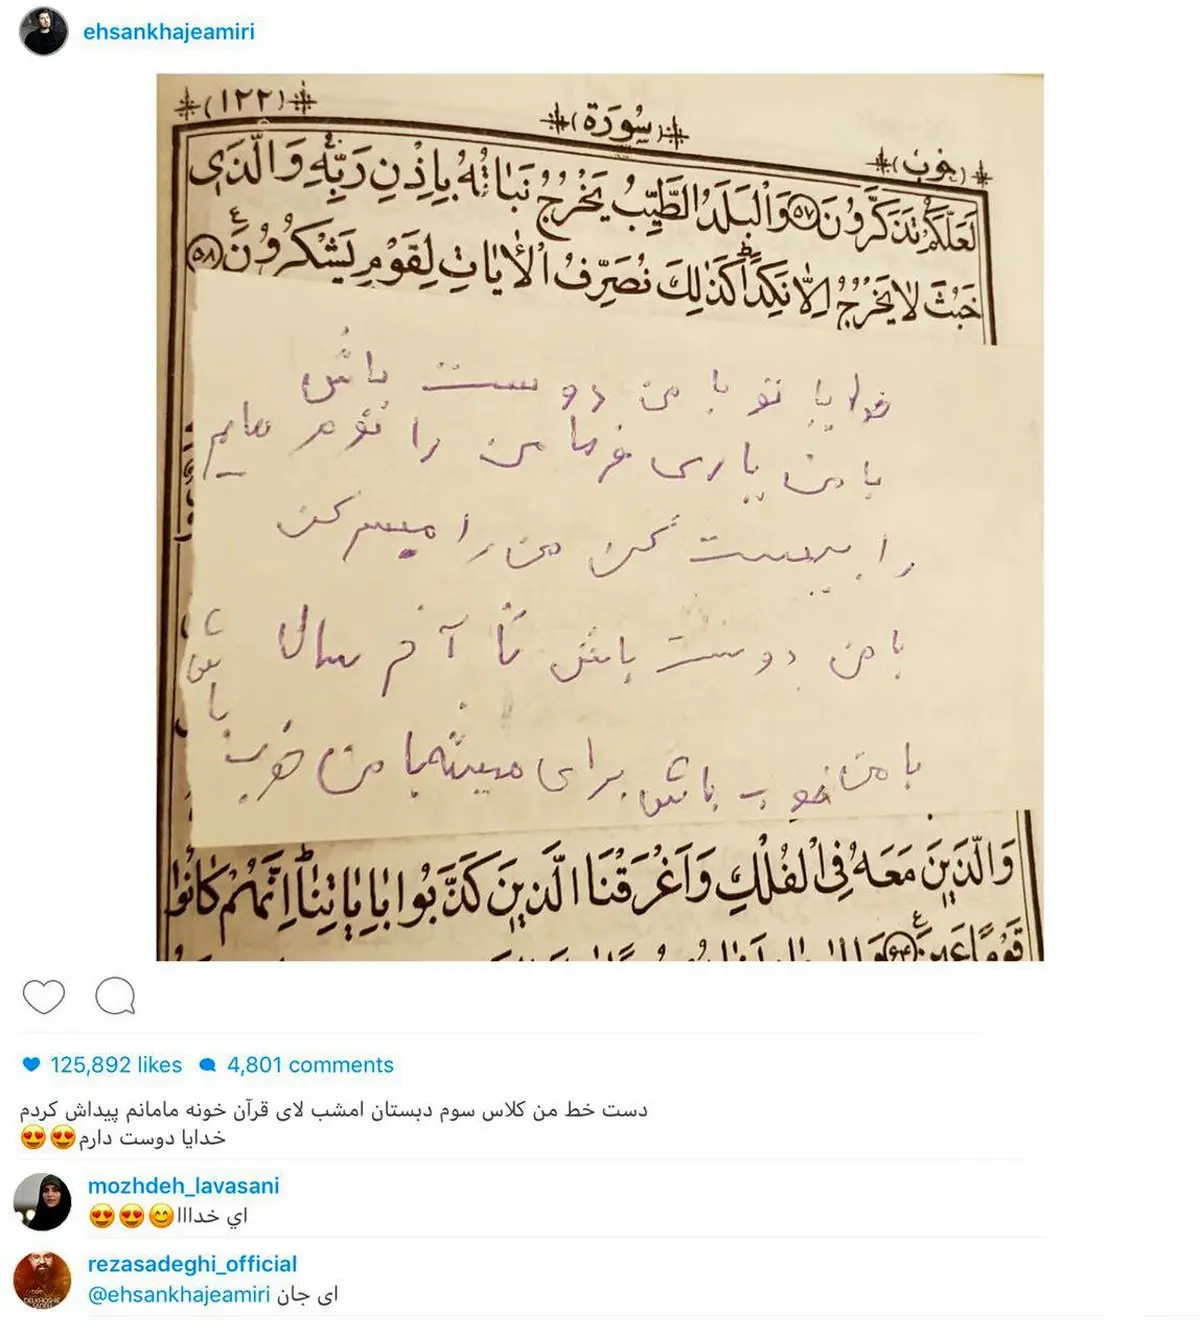 ehsankhajeamiri
(۱۲۲)
(سُورَة)
(خوب)
لَعَلَّكُمْ تَذَكَّرُونَ ۵۷ وَالْبَلَدُ الطَّيِّبُ يَخْرُجُ نَبَاتُهُ بِاِذْنِ رَبِّهٖ وَالَّذٖى
خَبُثَ لَا يَخْرُجُ اِلَّا نَكِداً كَذٰلِكَ نُصَرِّفُ الْاٰيَاتِ لِقَوْمٍ يَشْكُرُونَ ۵۸
خدایا تو با من دوست باش
با من یاری فرما من را
را بیست کن من را میسر کن
با من دوست باش تا آخر سال
با من خوب باش برای همیشه با من خوب
باش
وَالَّذٖينَ مَعَهُ فِى الْفُلْكِ وَاَغْرَقْنَا الَّذٖينَ كَذَّبُوا بِاٰيَاتِنَا اِنَّهُمْ كَانُوا
قَوْمًا عَمٖينَ ۶۴
125,892 likes 4,801 comments
دست خط من کلاس سوم دبستان امشب لای قرآن خونه مامانم پیداش کردم
خدایا دوست دارم😍😍
mozhdeh_lavasani
اي خدااا😊😍😍
rezasadeghi_official
@ehsankhajeamiri ای جان